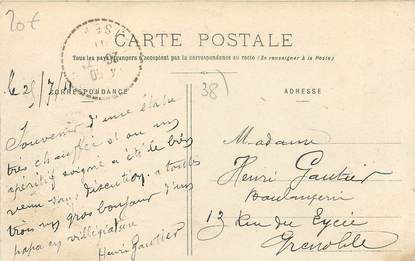 20f
CARTE POSTALE
Tous les pays étrangers n'acceptent pas la correspondance au recto (Se renseigner à la Poste)
CORRESPONDANCE
ADRESSE
38)
le 25/7/
Souvenir d'une
très chauffée et ou un
apéritif soigné a été le bien
venu sans discution. a toutes
trois un gros bonjour d'un
papa en villégiature
Henri Gautier
Madame
Henri Gautier
Boulangerie
13 Rue du Lycée
Grenoble